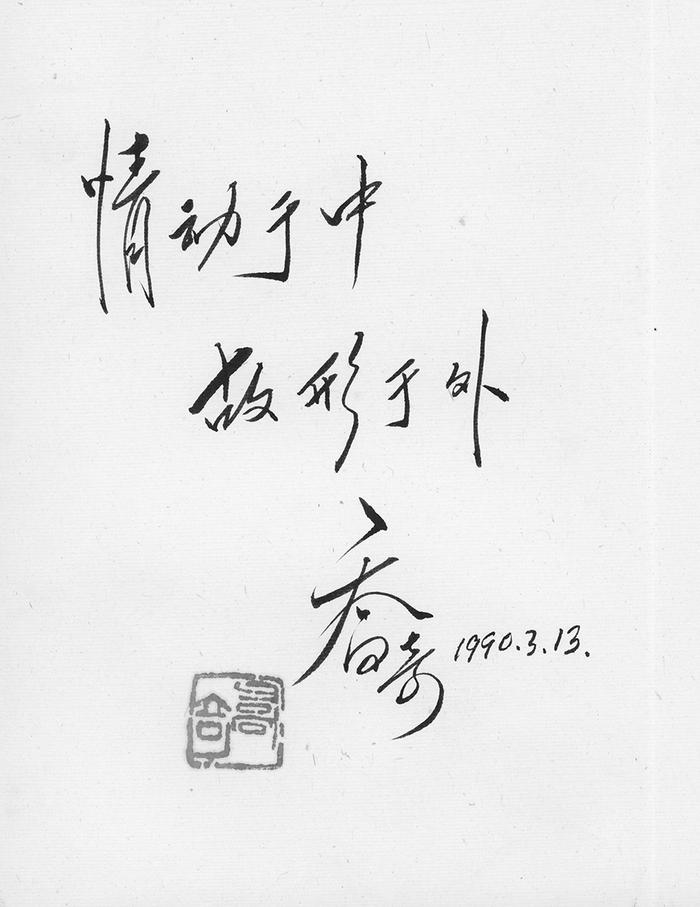 情动于中
故形于外
乔奇 1990.3.13.